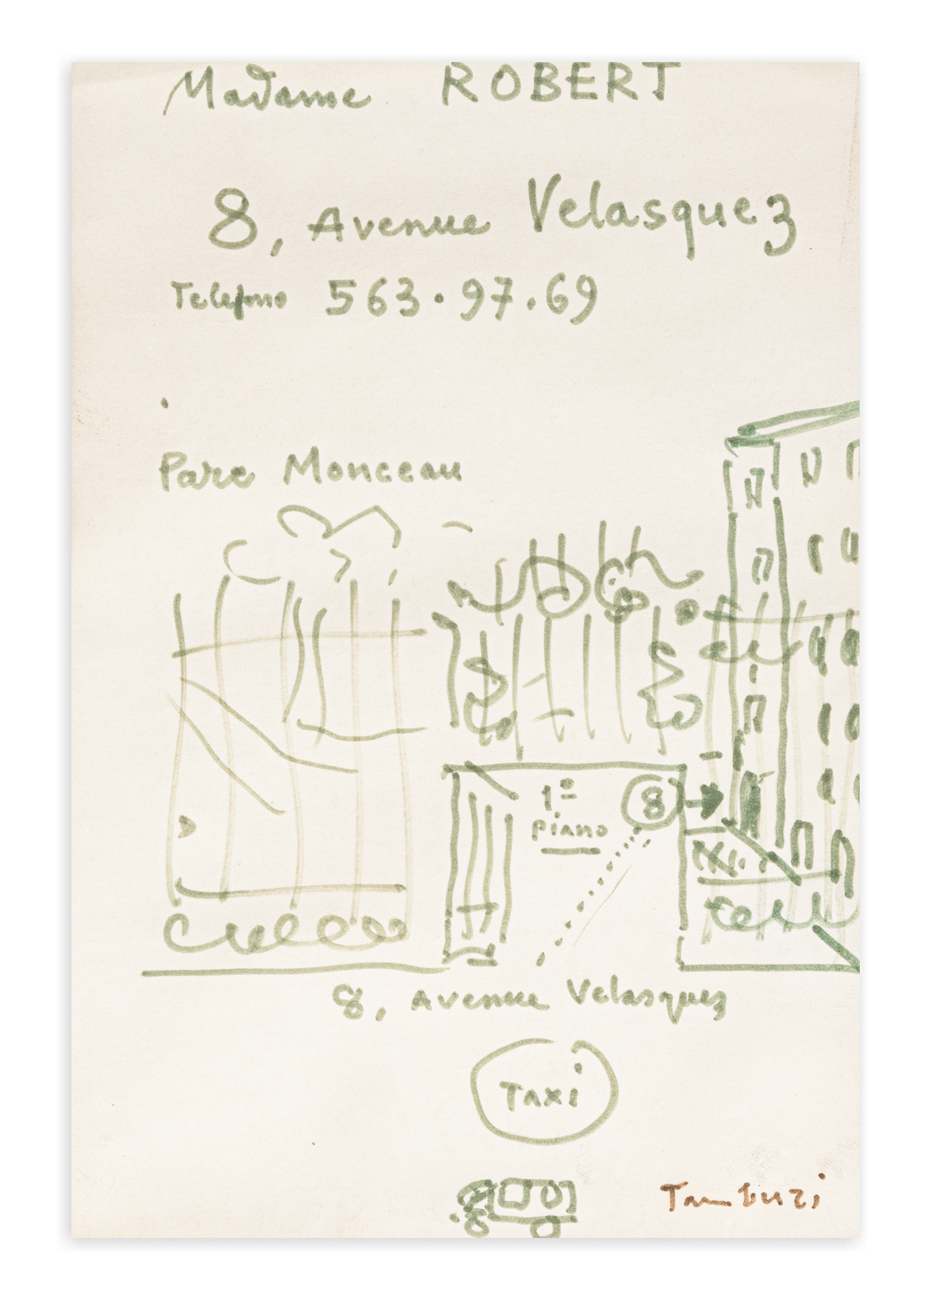 Madame ROBERT
8, Avenue Velasquez
Telefono 563.97.69
Parc Monceau
1º 8
piano
8, Avenue Velasquez
Taxi
Tamburi